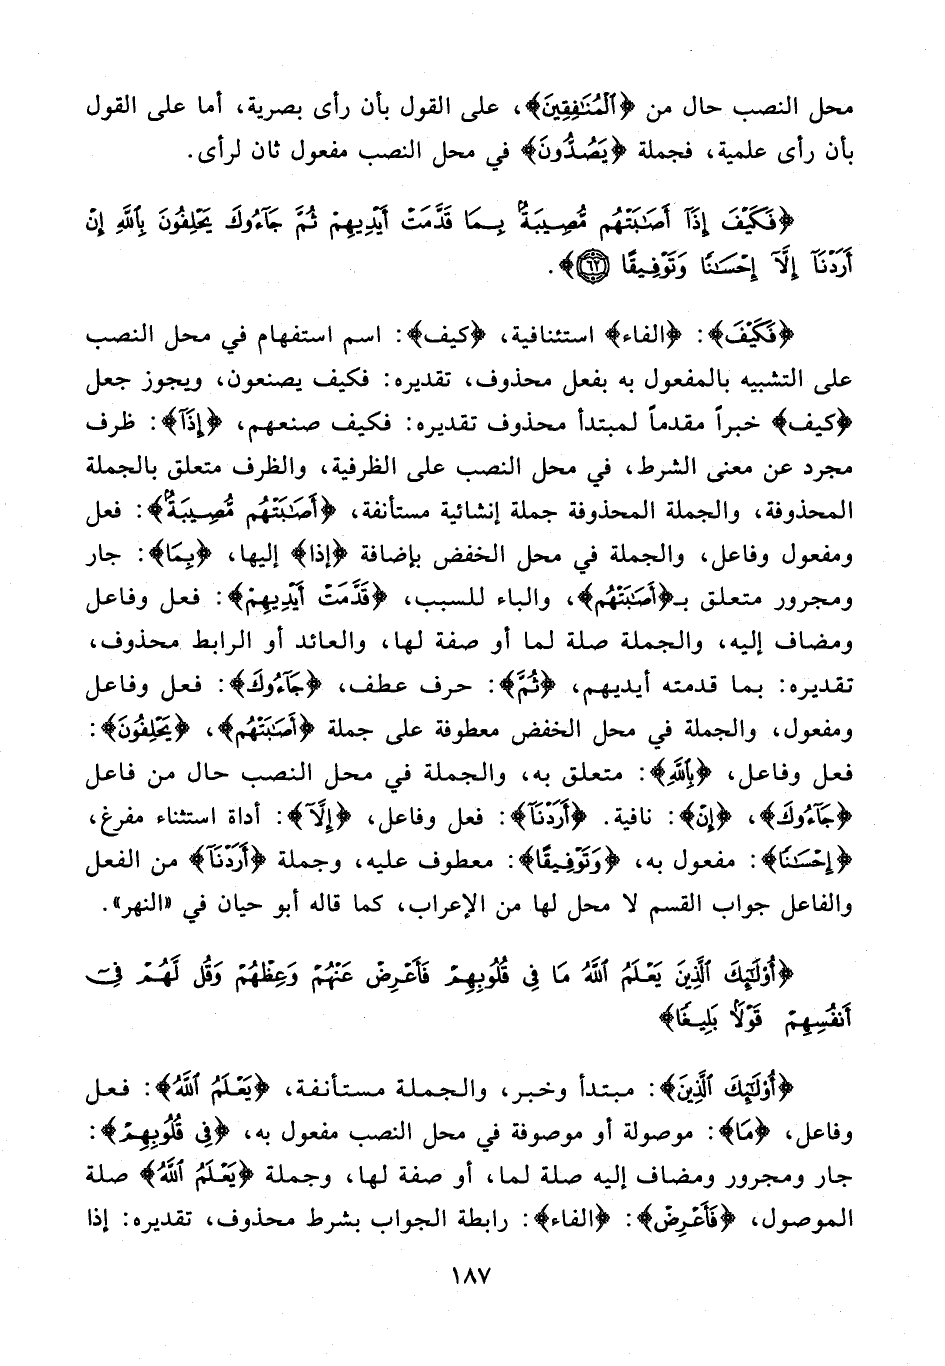 محل النصب حال من ﴿ٱلْمُنَـٰفِقِينَ﴾، على القول بأن رأى بصرية، أما على القول
بأن رأى علمية، فجملة ﴿يَصُدُّونَ﴾ في محل النصب مفعول ثان لرأى.
﴿فَكَيْفَ إِذَآ أَصَـٰبَتْهُم مُّصِيبَةٌۢ بِمَا قَدَّمَتْ أَيْدِيهِمْ ثُمَّ جَآءُوكَ يَحْلِفُونَ بِٱللَّهِ إِنْ
أَرَدْنَآ إِلَّآ إِحْسَـٰنًا وَتَوْفِيقًا ٦٢﴾.
﴿فَكَيْفَ﴾: ﴿الفاء﴾ استئنافية، ﴿كيف﴾: اسم استفهام في محل النصب
على التشبيه بالمفعول به بفعل محذوف، تقديره: فكيف يصنعون، ويجوز جعل
﴿كيف﴾ خبراً مقدماً لمبتدأ محذوف تقديره: فكيف صنعهم، ﴿إِذَآ﴾: ظرف
مجرد عن معنى الشرط، في محل النصب على الظرفية، والظرف متعلق بالجملة
المحذوفة، والجملة المحذوفة جملة إنشائية مستأنفة، ﴿أَصَـٰبَتْهُم مُّصِيبَةٌۢ﴾: فعل
ومفعول وفاعل، والجملة في محل الخفض بإضافة ﴿إذا﴾ إليها، ﴿بِمَا﴾: جار
ومجرور متعلق بـ﴿أَصَـٰبَتْهُم﴾، والباء للسبب، ﴿قَدَّمَتْ أَيْدِيهِمْ﴾: فعل وفاعل
ومضاف إليه، والجملة صلة لما أو صفة لها، والعائد أو الرابط محذوف،
تقديره: بما قدمته أيديهم، ﴿ثُمَّ﴾: حرف عطف، ﴿جَآءُوكَ﴾: فعل وفاعل
ومفعول، والجملة في محل الخفض معطوفة على جملة ﴿أَصَـٰبَتْهُم﴾، ﴿يَحْلِفُونَ﴾:
فعل وفاعل، ﴿بِٱللَّهِ﴾: متعلق به، والجملة في محل النصب حال من فاعل
﴿جَآءُوكَ﴾، ﴿إِنْ﴾: نافية. ﴿أَرَدْنَآ﴾: فعل وفاعل، ﴿إِلَّآ﴾: أداة استثناء مفرغ،
﴿إِحْسَـٰنًا﴾: مفعول به، ﴿وَتَوْفِيقًا﴾: معطوف عليه، وجملة ﴿أَرَدْنَآ﴾ من الفعل
والفاعل جواب القسم لا محل لها من الإعراب، كما قاله أبو حيان في «النهر».
﴿أُوْلَـٰٓئِكَ ٱلَّذِينَ يَعْلَمُ ٱللَّهُ مَا فِى قُلُوبِهِمْ فَأَعْرِضْ عَنْهُمْ وَعِظْهُمْ وَقُل لَّهُمْ فِىٓ
أَنفُسِهِمْ قَوْلًۢا بَلِيغًا﴾
﴿أُوْلَـٰٓئِكَ ٱلَّذِينَ﴾: مبتدأ وخبر، والجملة مستأنفة، ﴿يَعْلَمُ ٱللَّهُ﴾: فعل
وفاعل، ﴿مَا﴾: موصولة أو موصوفة في محل النصب مفعول به، ﴿فِى قُلُوبِهِمْ﴾:
جار ومجرور ومضاف إليه صلة لما، أو صفة لها، وجملة ﴿يَعْلَمُ ٱللَّهُ﴾ صلة
الموصول، ﴿فَأَعْرِضْ﴾: ﴿الفاء﴾: رابطة الجواب بشرط محذوف، تقديره: إذا
١٨٧